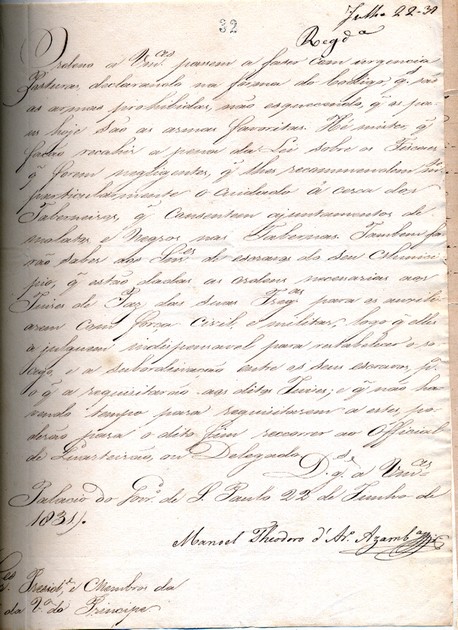 Julho 22-31
32
Regd.ª
Ordeno a V.mces passem a fazer com urgencia
Posturas, declarando na fórma do Codigo q. são
as armas prohibidas, não esquecendo, q. as
as hoje são as armas favoritas. He mister, q.
fação recahir a pena da Lei sobre os Fiscaes
q. forem negligentes, q. lhes recommendem
particularmente o cuidado á cerca dos
Taberneiros, q. consentem ajuntamentos de
mulatos e Negros nas Tabernas. Tambem fa-
rão saber aos Sen.res de escravos do seu Munici-
pio, q. estão dadas as ordens necessarias aos
Juizes de Paz das suas Freg.as para os auxili-
arem com força Civil, e militar, logo q. elles
a julguem indispensavel para restabelecer o so-
cego, e a subordinação entre os seus escravos, p.
o q. a requisitarão aos ditos Juizes; e q. não ha-
vendo tempo para requisitarem a estes, po-
derão para o dito fim recorrer ao Official
de Quarteirão, ou Delegado.
D.s g.e a V.mces
Palacio do Gov.º de S. Paulo 22 de Junho de
1831.
Manoel Theodoro d'Ar.º Azamb.ª
Presid.e, e Membros da
da V.ª do Principe